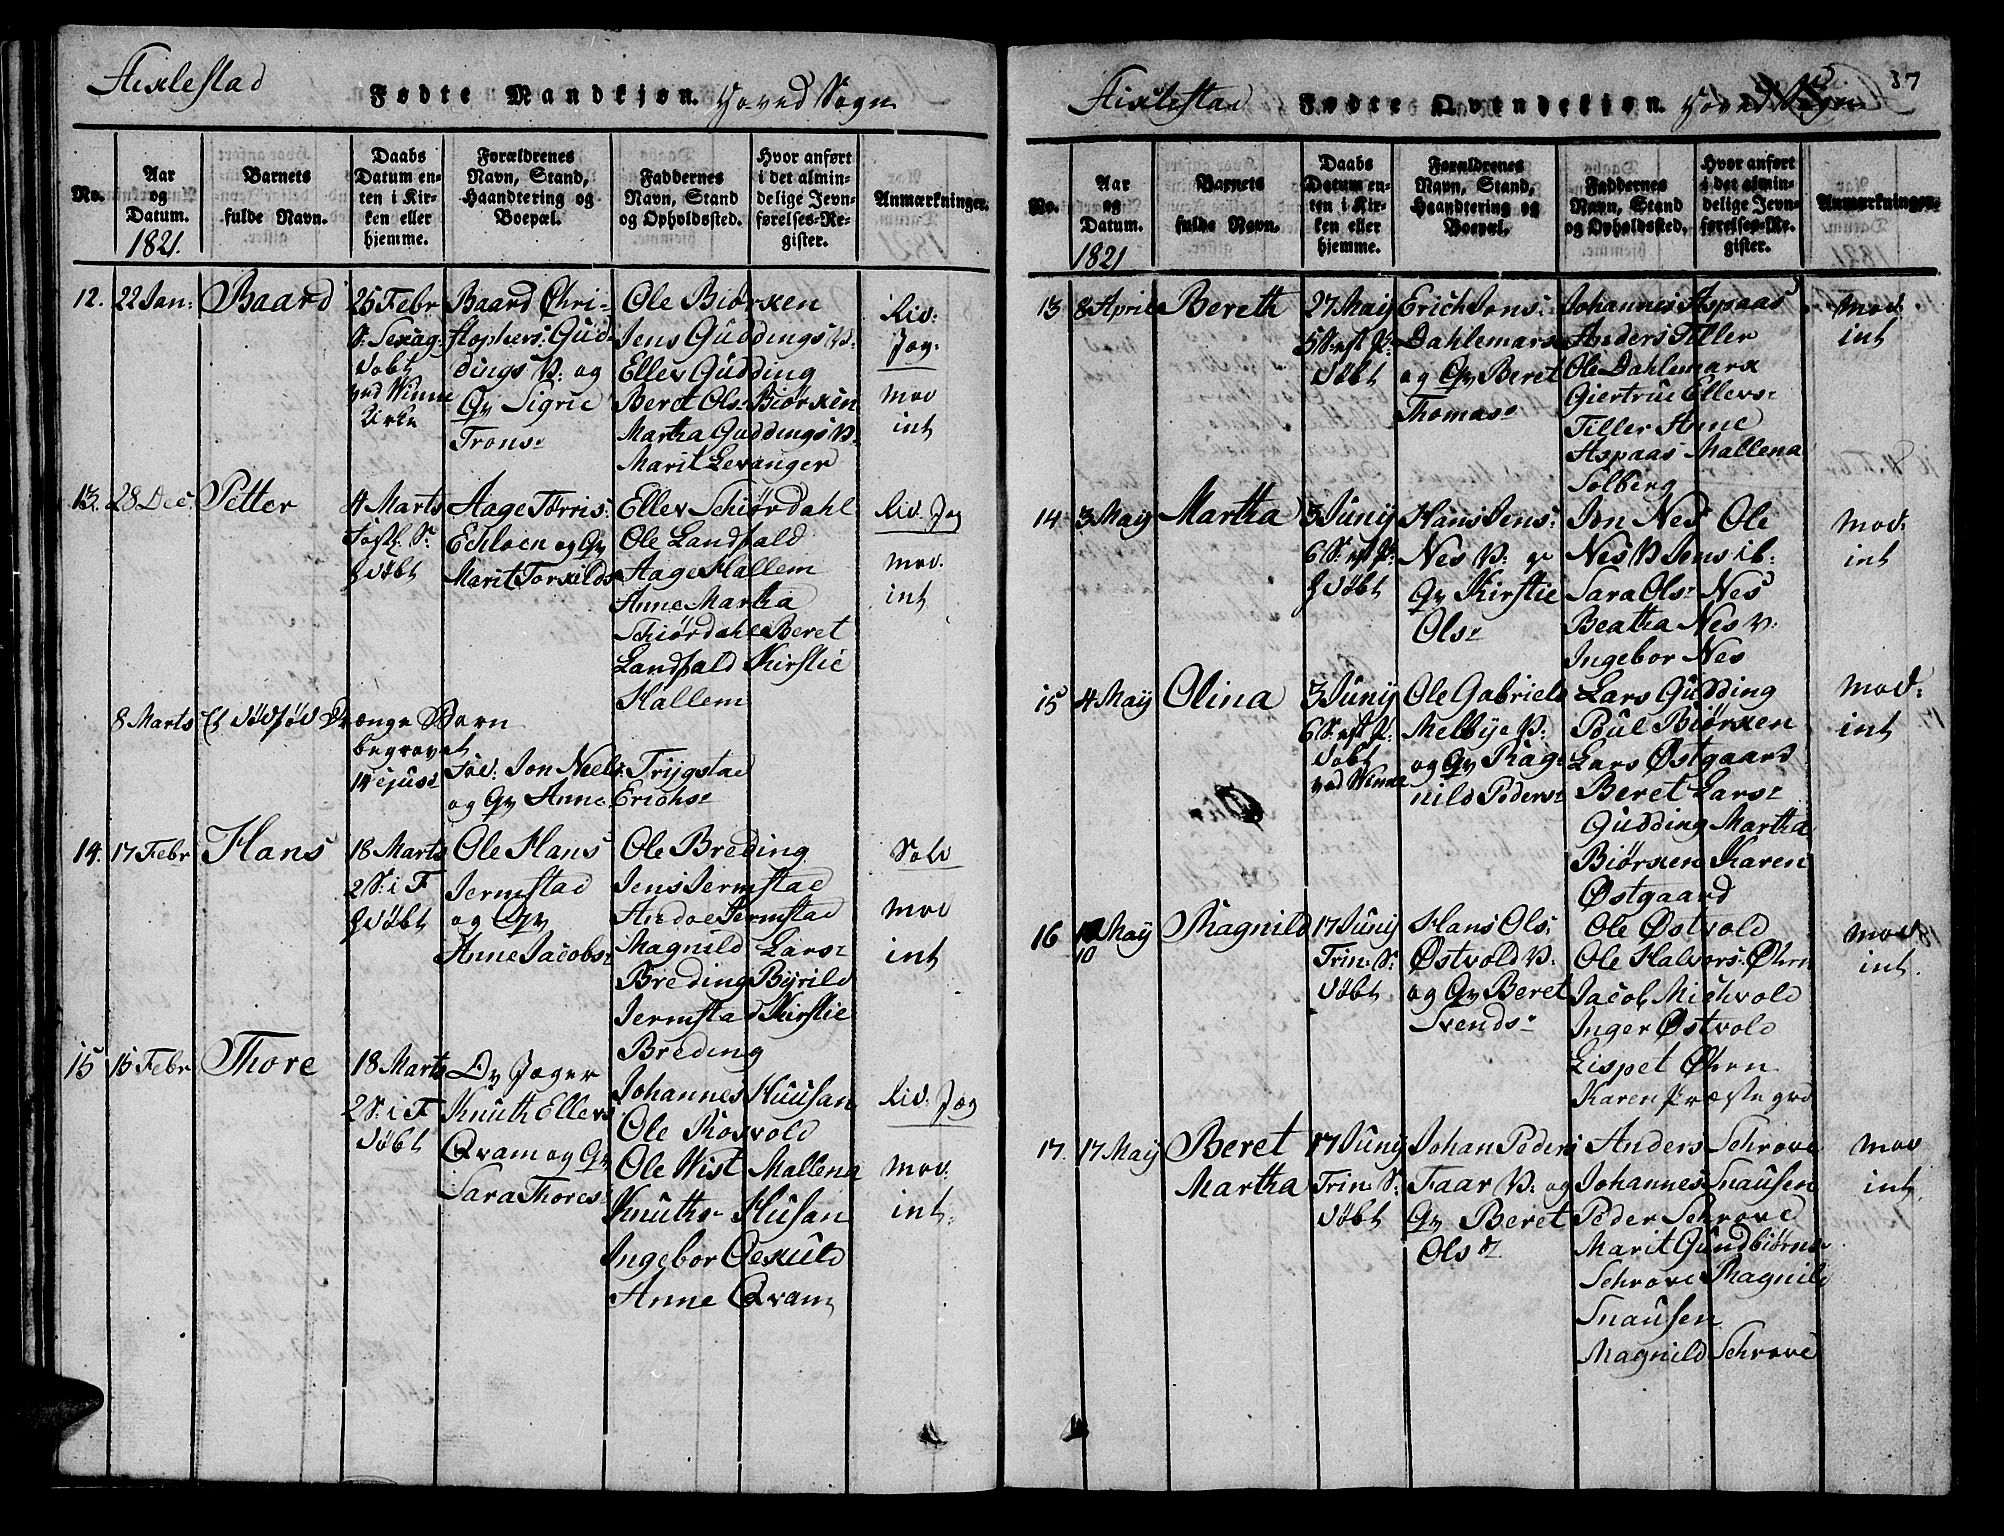 Stixlestad
Fødte Mandkjøn. Hoved Sogn
No.
Aar og Datum. 1821.
Barnets fulde Navn.
Daabs Datum enten i Kirken eller hjemme.
Forældrenes Navn, Stand, Haandtering og Boepæl.
Faddernes Navn, Stand og Opholdssted.
Hvor anført i det almindelige Jevnførelses-Register.
Anmærkninger.
12. 22 Jan: Baard
25 Febr
S: Sexag:
døbt
ved Winne
Kirke
Baard Chri-
stophers: Gud-
dings P: og
Qv Sigrie
Trons-
Ole Biørken
Jens Guddings P:
Ellev Gudding
Beret Ols- Biørken
Martha Guddings P:
Marit Levanger
Rid:
Jæg:
mod
int
13. 28 Dec: Petter
4 Marts
Fastl. S:
gdøbt
Aage Tørris:
Echloen og Qv
Marit Torkilds-
Ellev Schiørdahl
Ole Landfald
Aage Hallem
Anne Martha
Schiørdahl Beret
Landfald Kirstie
Hallem
Rid. Jæg
mod.
int
8 Marts Et dødfød Drænge Barn
begravet
14 ejusd
Fod: Jon Neels: Trygstad
og Qv Anne Erichs-
14. 17 Febr Hans
18 Marts
2 S: i F
gdøbt
Ole Hans
Jermstad
og Qv
Anne Jacobs-
Ole Breding
Jens Jermstad
Andoe Jermstad
Magnild Lars-
Breding Byrild
Jermstad Kirstie
Breding
Sold
mod
int
15 15 Febr Thore
18 Marts
2 S: i F
døbt
Dv Jæger
Knuth Ellevs
Qvam og Qv
Sara Thores:
Johannes Huusan
Ole Rosvold
Ole Wist Mallena
Knuths- Husan
Ingebor Oexuld
Anne Qvam
Rid: Jæg
mod.
int.
Stixlestad
Fødte Qvindekjøn. Hoved Sogn
37
No.
Aar og Datum. 1821
Barnets fulde Navn.
Daabs Datum enten i Kirken eller hjemme.
Forældrenes Navn, Stand, Haandtering og Boepæl.
Faddernes Navn, Stand og Opholdssted.
Hvor anført i det almindelige Jevnførelses-Register.
Anmærkninger.
13 8 April Bereth
27 May
5 S: eft P:
døbt
Erich Jons:
Dahlemark
og Qv Beret
Thomas-
Johannes Aspaas
Anders Tiller
Ole Dahlemark
Giertrue Ellevs-
Tiller Anne
Aspaas Mallena
Solberg
mod:
int
14 3 May Martha
3 Juny
6 S: eft P:
gdøbt
Hans Jens:
Nes P: og
Qv Kirstie
Ols-
Jon Nes Ole
Nes P Jens ib:
Sara Ols- Nes
Beatha Nes P:
Ingebor Nes
mod:
int
15 4 May Olina
3 Juny
6 S: eft P:
døbt
ved Winne
Ole Gabriels
Melbye P:
og Qv Rag-
nild Peders-
Lars Gudding
Poul Biørken
Lars Østgaard
Beret Lars-
Gudding Martha
Biørken Karen
Østgaard
mod:
int
16 10 May Ragnild
17 Juny
Trin: S:
døbt
Hans Ols:
Østvold P:
og Qv Beret
Svends-
Ole Østvold
Ole Halvors: Øhrn
Jacob Michvold
Inger Østvold
Lispet Øhrn
Karen Præstegrd
mod
int.
17. 17 May Beret
Martha
17 Juny
Trin: S:
døbt
Johan Peders
Faar P: og
Qv Beret
Ols-
Anders Schrove
Johannes Snausen
Peder Schrove
Marit Gundbiørns-
Schrove Ragnild
Snausen
Magnild Schrove
mod
int